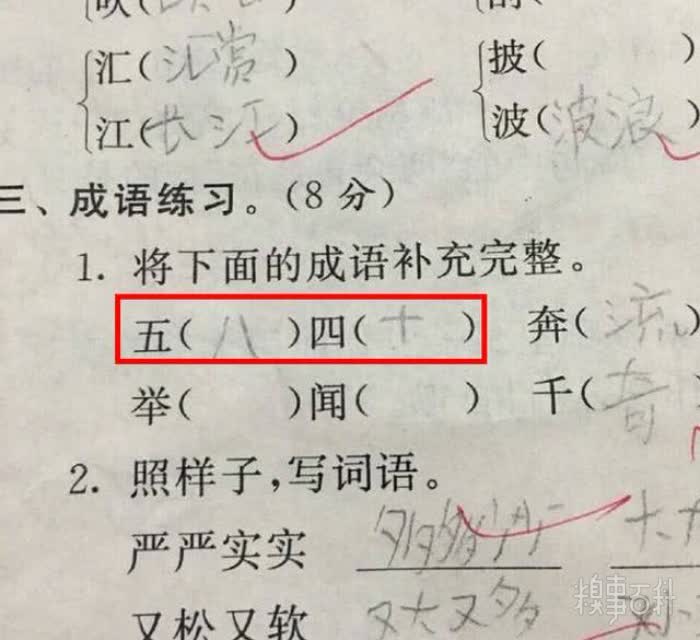 汇(汇赏) 披( )
江(长江) 波(波浪)
三、成语练习。(8分)
1. 将下面的成语补充完整。
五(八)四(十) 奔(流)
举( )闻( ) 千(奇)
2. 照样子,写词语。
严严实实
又松又软 又大又多
糗事百科